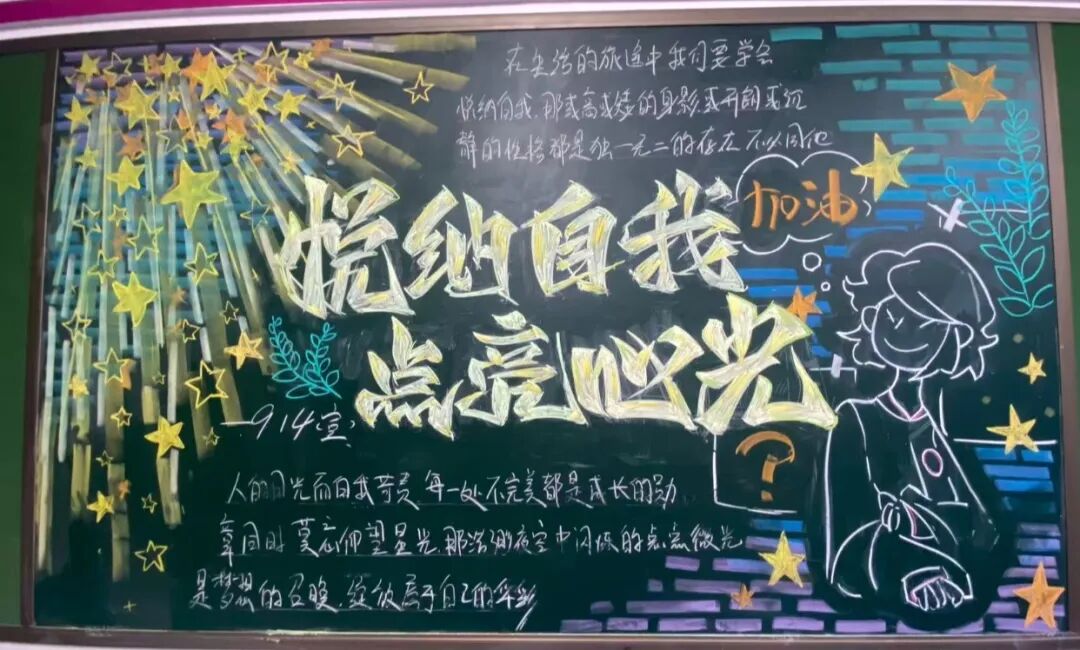 在生活的旅途中我们要学会
悦纳自我,那或高或矮的身影或开朗或沉
静的性格都是独一无二的存在 不必因他
加油
悦纳自我
点亮心光
914宣
?
人的目光而自我苛责,每一处不完美都是成长的勋
章同时莫忘仰望星光 那浩渺夜空中闪烁的点点微光
是梦想的召唤,绽放属于自己的华彩